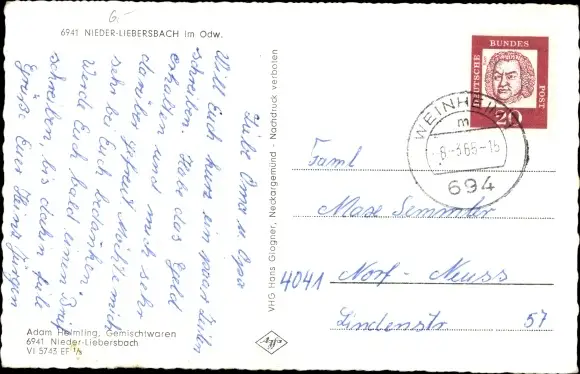 6.-
6941 NIEDER-LIEBERSBACH im Odw.
Liebe Oma u Opa
Will Euch kurz ein paar Zeilen
schreiben. Habe das Geld
erhalten und mich sehr
darüber gefreut. Möchte mich
sehr bei Euch bedanken.
Werde Euch bald einen Brief
schreiben, bis dahin viele
Grüße Euer Heinz Jürgen
Adam Helmling, Gemischtwaren
6941 Nieder-Liebersbach
VI 5743 EF
VHG Hans Grogner, Neckargemünd - Nachdruck verboten
DEUTSCHE BUNDES POST
20
WEINHEIM
m
8-3.65-15
694
Faml
Max Semmler
4041 Norf-Neuss
Lindenstr 57